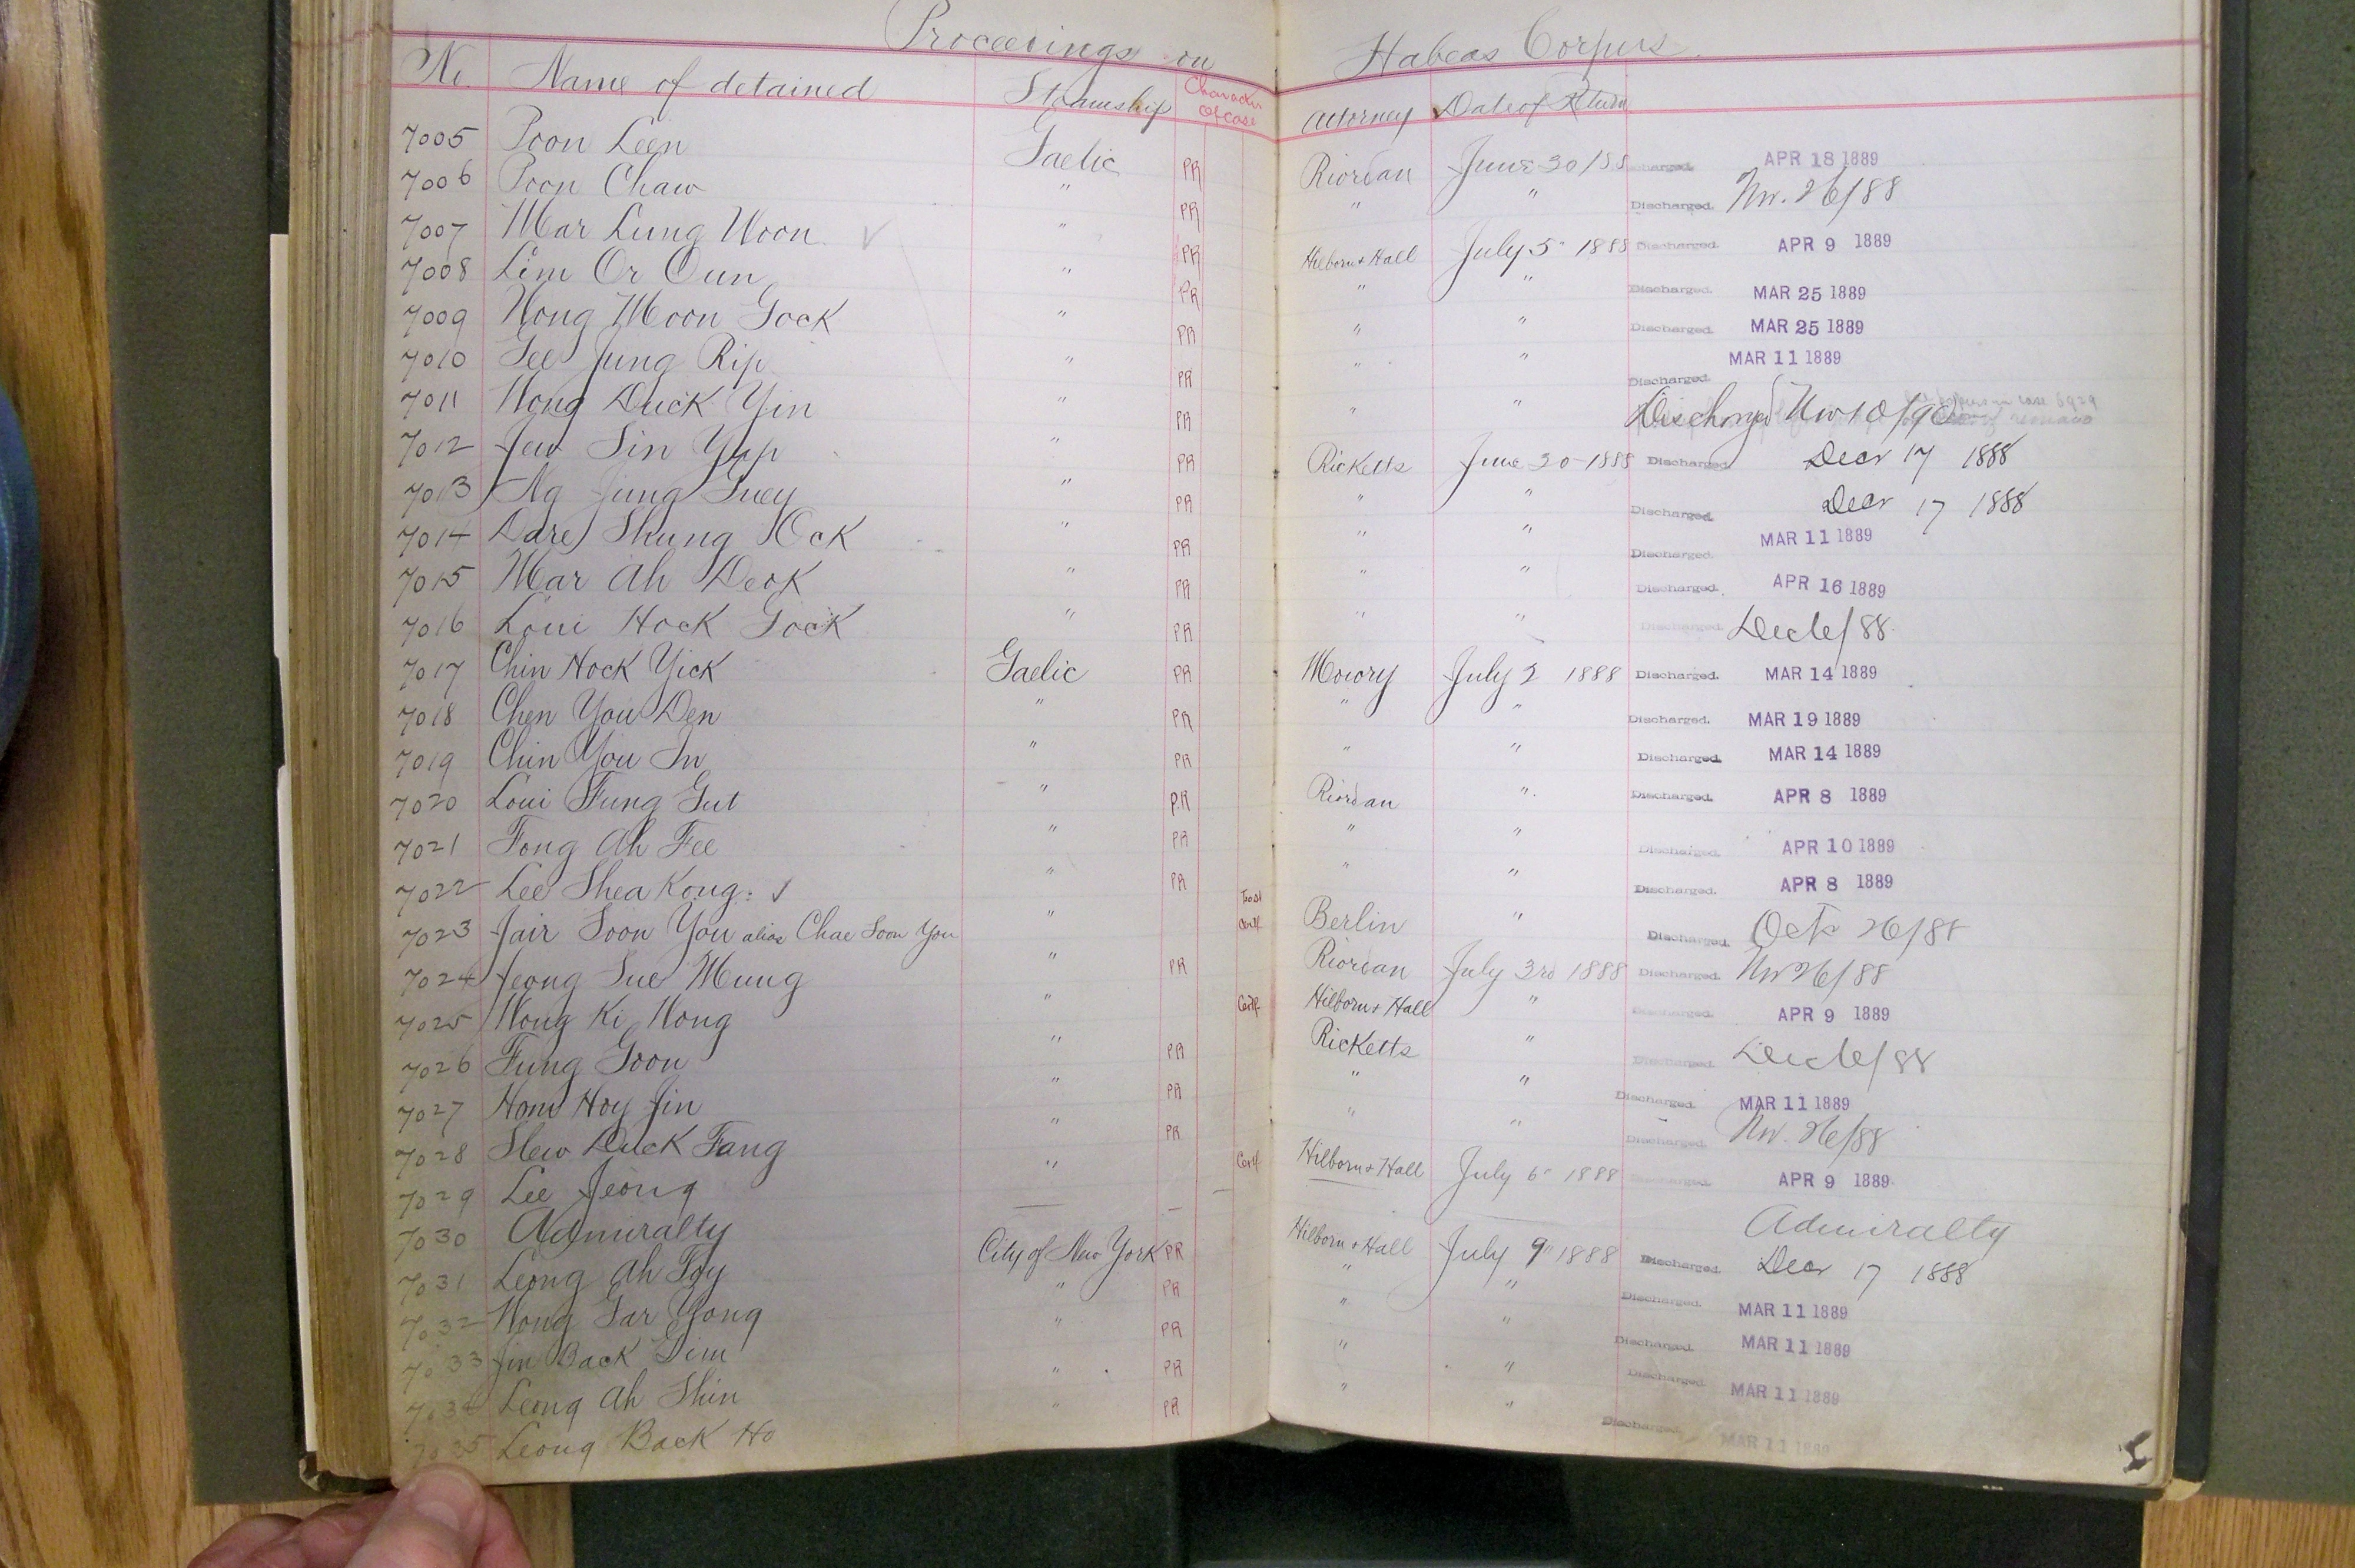 Proceedings on Habeas Corpus.
No. Name of detained Steamship Character of case Attorney Date of Return
7005 Poon Leen Gaelic PR Riordan June 30/88 Discharged. APR 18 1889
7006 Poon Chaw " PR " " Discharged. Nov. 26/88
7007 Mar Lung Woon " PR Hilborn & Hall July 5" 1888 Discharged. APR 9 1889
7008 Lim Or Oun " PR " " Discharged. MAR 25 1889
7009 Wong Moon Gock " PR " " Discharged. MAR 25 1889
7010 Gee Jung Rip " PR " " Discharged. MAR 11 1889
7011 Wong Duck Yin " PR " " Discharged Nov 10/90
7012 Jew Sin Yap " PR Ricketts June 30 1888 Discharged. Decr 17 1888
7013 Ng Jung Guey " PR " " Discharged. Decr 17 1888
7014 Dare Shung Ock " PR " " Discharged. MAR 11 1889
7015 Mar Ah Deok " PR " " Discharged. APR 16 1889
7016 Loui Hock Gock " PR " " Discharged. Dec 6/88
7017 Chin Hock Yick Gaelic PR Mowry July 2 1888 Discharged. MAR 14 1889
7018 Chen You Den " PR " " Discharged. MAR 19 1889
7019 Chin You In " PR " " Discharged. MAR 14 1889
7020 Loui Fung Gut " P.R Riordan " Discharged. APR 8 1889
7021 Fong Ah Fee " PR " " Discharged. APR 10 1889
7022 Lee Shea Kong. " PR " " Discharged. APR 8 1889
7023 Jair Soon You alias Chae Soon You " Cert. Berlin " Discharged. Oct 26/88
7024 Jeong Sue Mung " PR Riordan July 3rd 1888 Discharged. Nov 26/88
7025 Wong Ki Wong " Cert. Hilborn & Hall " Discharged. APR 9 1889
7026 Fung Goon " PR Ricketts " Discharged. Dec 6/88
7027 Hom Hoy Jin " PR " " Discharged. MAR 11 1889
7028 Slew Duck Fang " PR " " Discharged. Nov. 26/88
7029 Lee Jeong " Cert. Hilborn & Hall July 6" 1888 Discharged. APR 9 1889
7030 Admiralty — — — Admiralty
7031 Leong Ah Foy City of New York PR Hilborn & Hall July 9" 1888 Discharged. Decr 17 1888
7032 Wong Gar Yong " PR " " Discharged. MAR 11 1889
7033 Jin Back Gim " PR " " Discharged. MAR 11 1889
7034 Leong Ah Shin " PR " " Discharged. MAR 11 1889
7035 Leong Back Ho " PR " " Discharged. MAR 11 1889